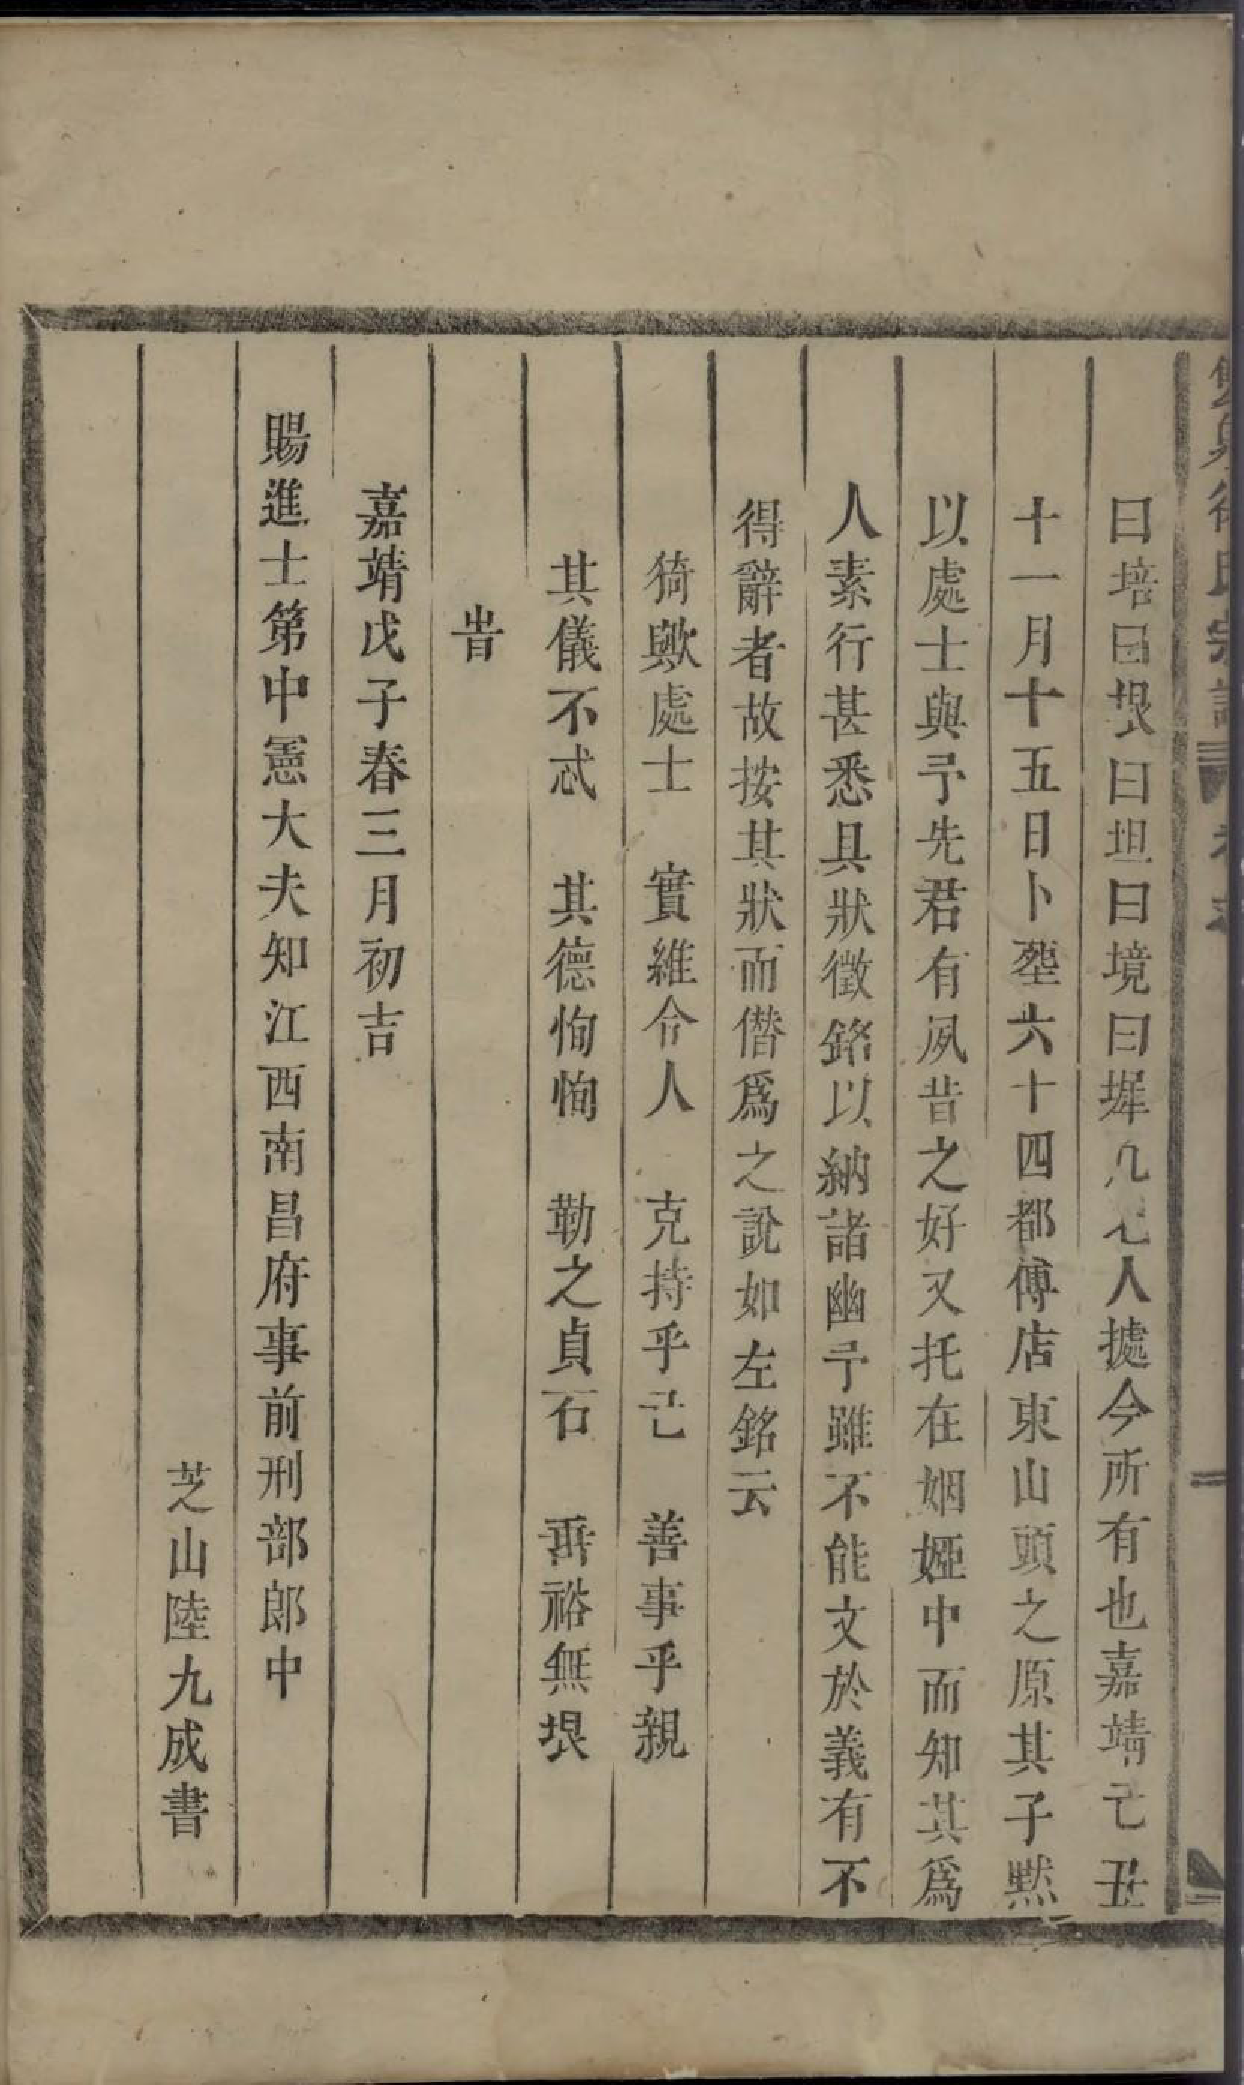 曰培曰垠曰坦曰境曰墀凡七人據今所有也嘉靖己丑
十一月十五日卜塟六十四都傅店東山頭之原其子黙
以處士與予先君有夙昔之好又托在姻婭中而知其為
人素行甚悉具狀徵銘以納諸幽予雖不能文於義有不
得辭者故按其狀而僭爲之說如左銘云
猗歟處士　實維令人　克持乎己　善事乎親
其儀不忒　其德恂恂　勒之貞石　垂裕無垠
旹
嘉靖戊子春三月初吉
賜進士第中憲大夫知江西南昌府事前刑部郎中
芝山陸九成書